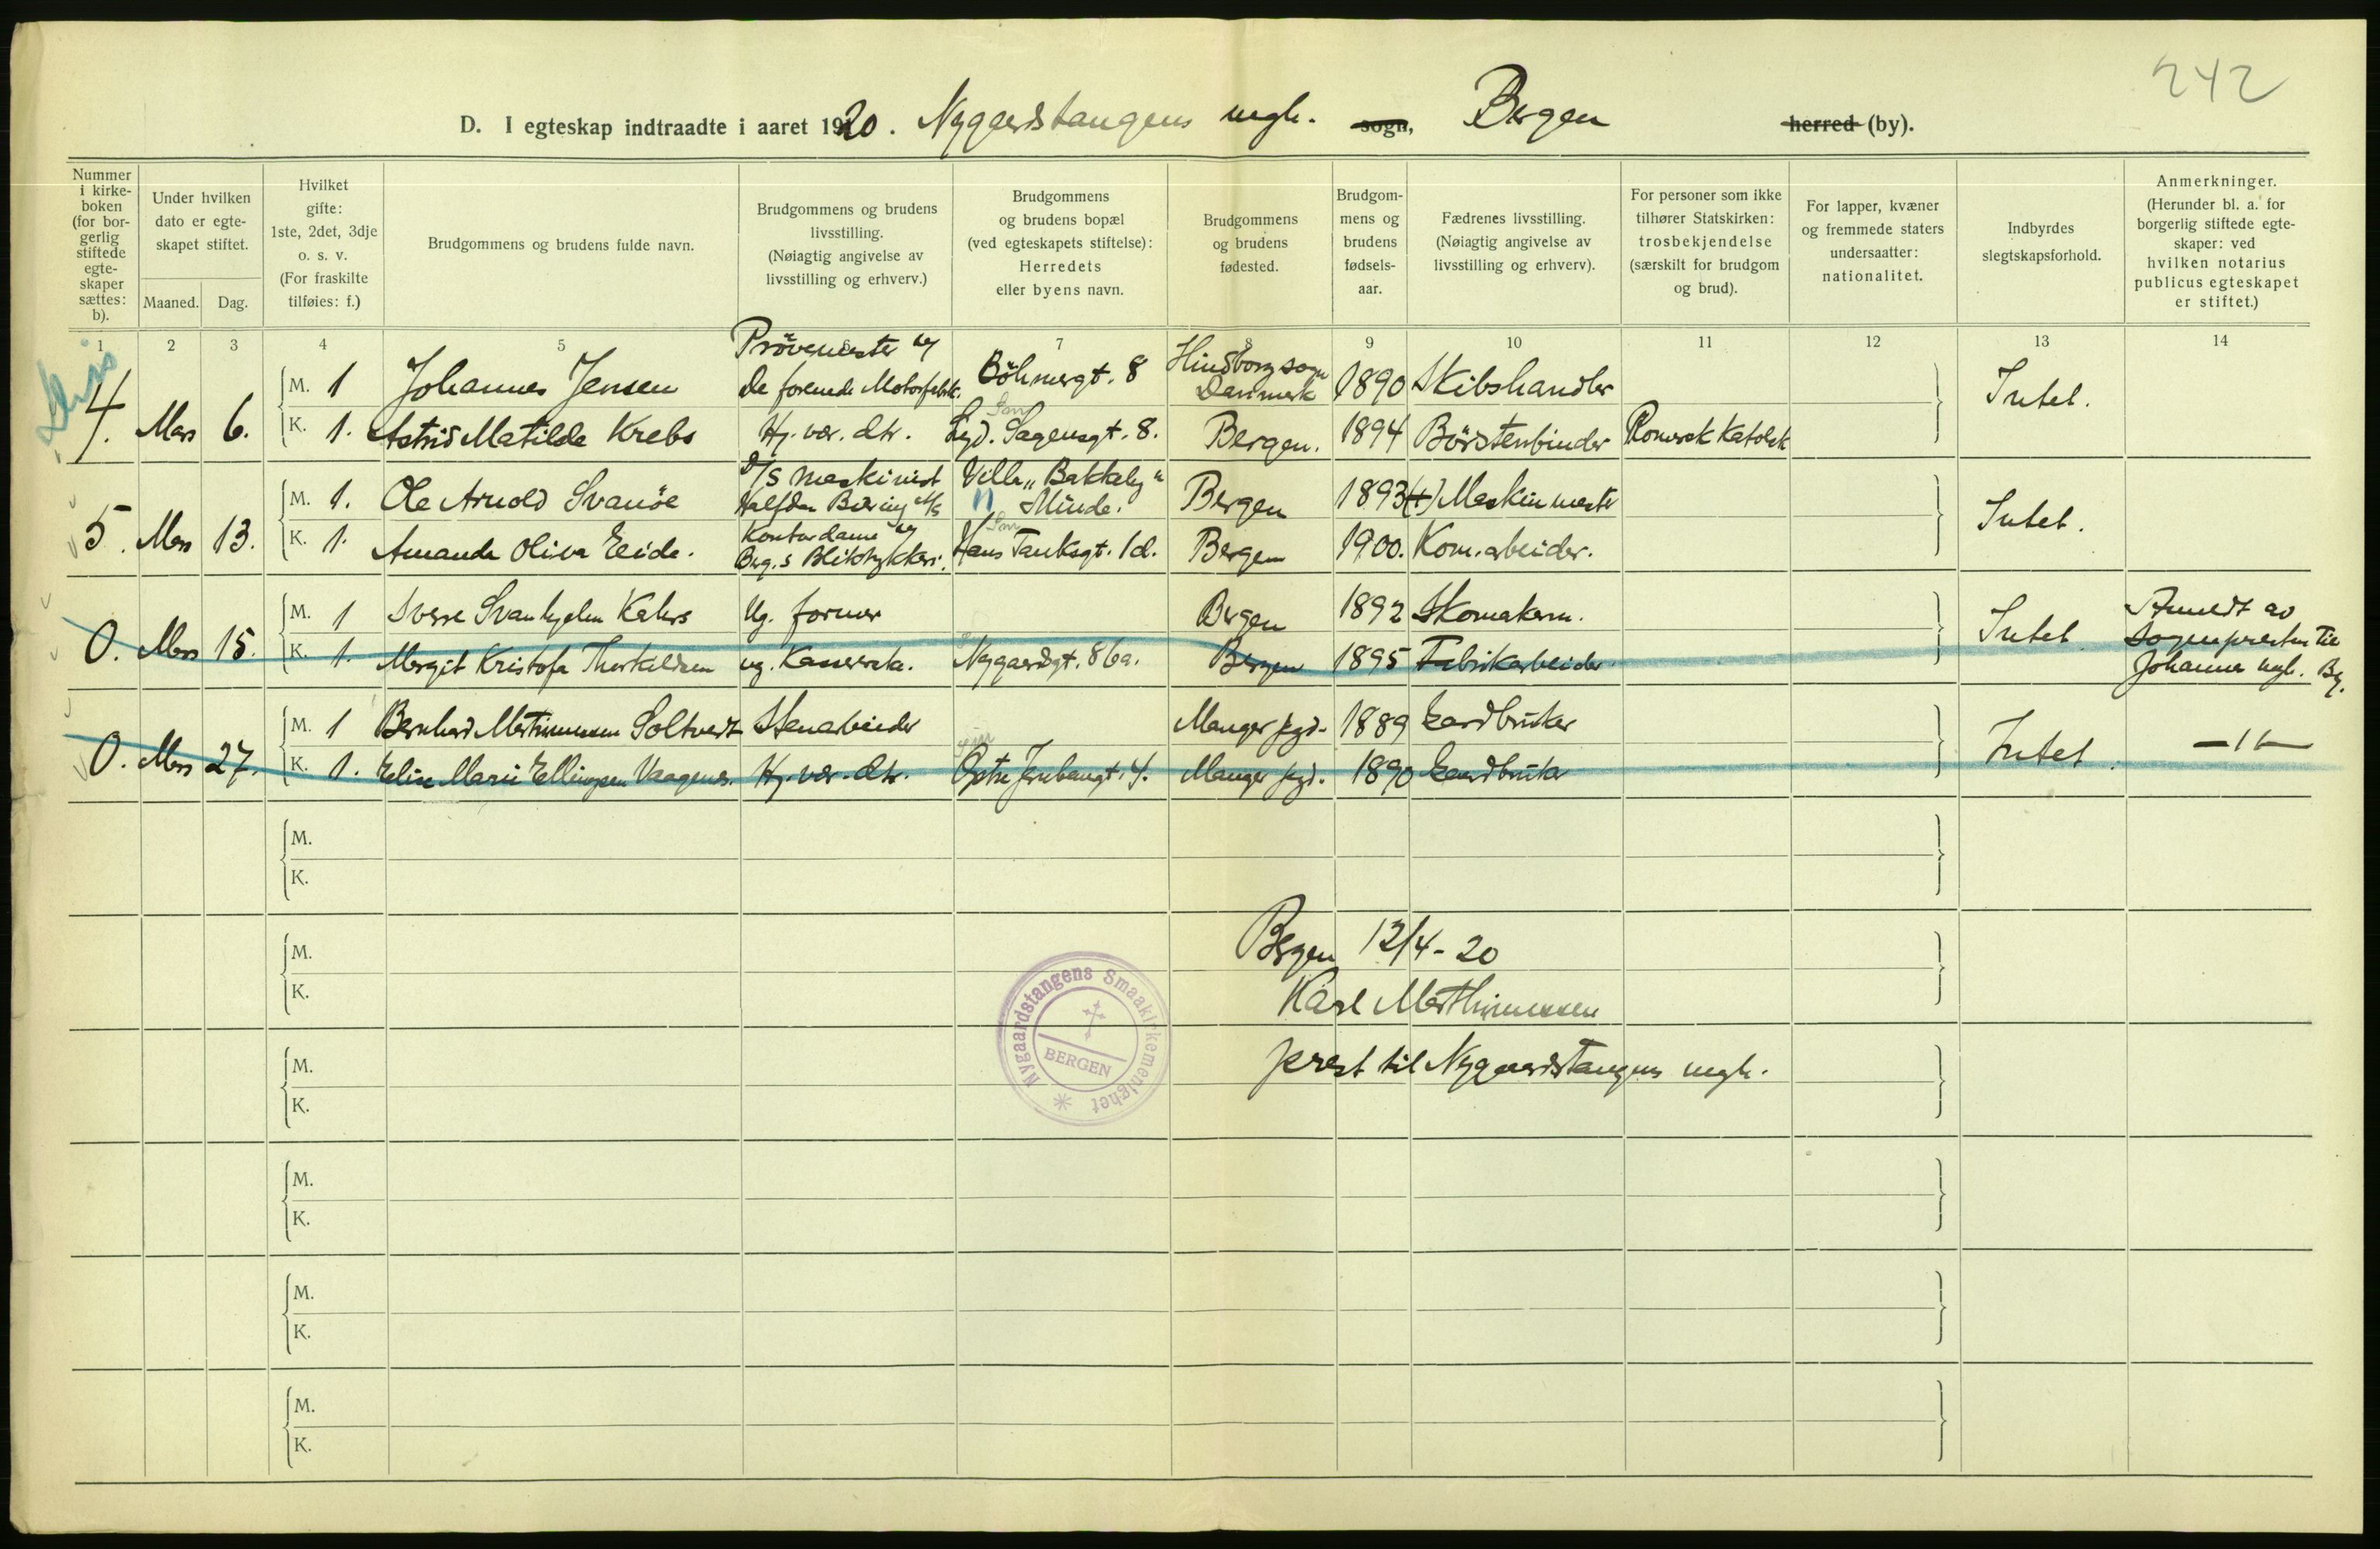 242
D. I egteskap indtraadte i aaret 1920. Nygaardstangens mgh. sogn, Bergen herred (by).
Nummer i kirkeboken (for borgerlig stiftede egteskaper sættes: b).
Under hvilken dato er egteskapet stiftet.
Maaned. Dag.
Hvilket gifte: 1ste, 2det, 3dje o. s. v. (For fraskilte tilføies: f.)
Brudgommens og brudens fulde navn.
Brudgommens og brudens livsstilling. (Nøiagtig angivelse av livsstilling og erhverv.)
Brudgommens og brudens bopæl (ved egteskapets stiftelse): Herredets eller byens navn.
Brudgommens og brudens fødested.
Brudgommens og brudens fødselsaar.
Fædrenes livsstilling. (Nøiagtig angivelse av livsstilling og erhverv).
For personer som ikke tilhører Statskirken: trosbekjendelse (særskilt for brudgom og brud).
For lapper, kvæner og fremmede staters undersaatter: nationalitet.
Indbyrdes slegtskapsforhold.
Anmerkninger. (Herunder bl. a. for borgerlig stiftede egteskaper: ved hvilken notarius publicus egteskapet er stiftet.)
1 2 3 4 5 6 7 8 9 10 11 12 13 14
4. Mars 6.
M. 1 Johannes Jensen Prövemester ved De forenede Motorfabrik. Böhmergt. 8 Hindborg sogn Danmark 1890 Skibshandler Intet.
K. 1. Astrid Matilde Krebs Hj. vær. dtr. Lyd. Sagensgt. 8. Bergen. 1894 Börstenbinder Romersk Katolsk
5. Mars 13.
M. 1. Ole Arnold Svanöe D/S maskinist Halfdan Bören A/S Villa "Bakkely" Minde. Bergen 1893 (+) Maskinmester Intet.
K. 1. Amanda Oliva Eide. Kontordame ved Berg.s Bliktrykkeri. Hans Tanksgt. 1d. Bergen 1900. Kom. arbeider.
0. Mars 15.
M. 1 Sverre Svanhjelm Kahrs Ug. former Bergen 1892 Skomakerm. Intet Anmeldt av Sognepresten til Johannes mgh. Bg.
K. 1. Margit Kristofa Thorkildsen ug. Kasserske. Nygaardsgt. 86a. Bergen 1895 Fabrikarbeider
0. Mars 27.
M. 1 Bernhard Martinussen Soltvedt Stenarbeider Manger pgd. 1889 Gaardbruker Intet. —"—
K. 1. Eline Marie Ellingsen Vaagenes. Hj. vær. dtr. Östre Jernbanegt. 4. Manger pgd. 1890 Gaardbruker
M.
K.
M.
K.
Bergen 12/4-20
Karl Marthinussen
prest til Nygaardstangens mgh.
Nygaardstangens Smaakirkemenighet
BERGEN
M.
K.
M.
K.
M.
K.
M.
K.